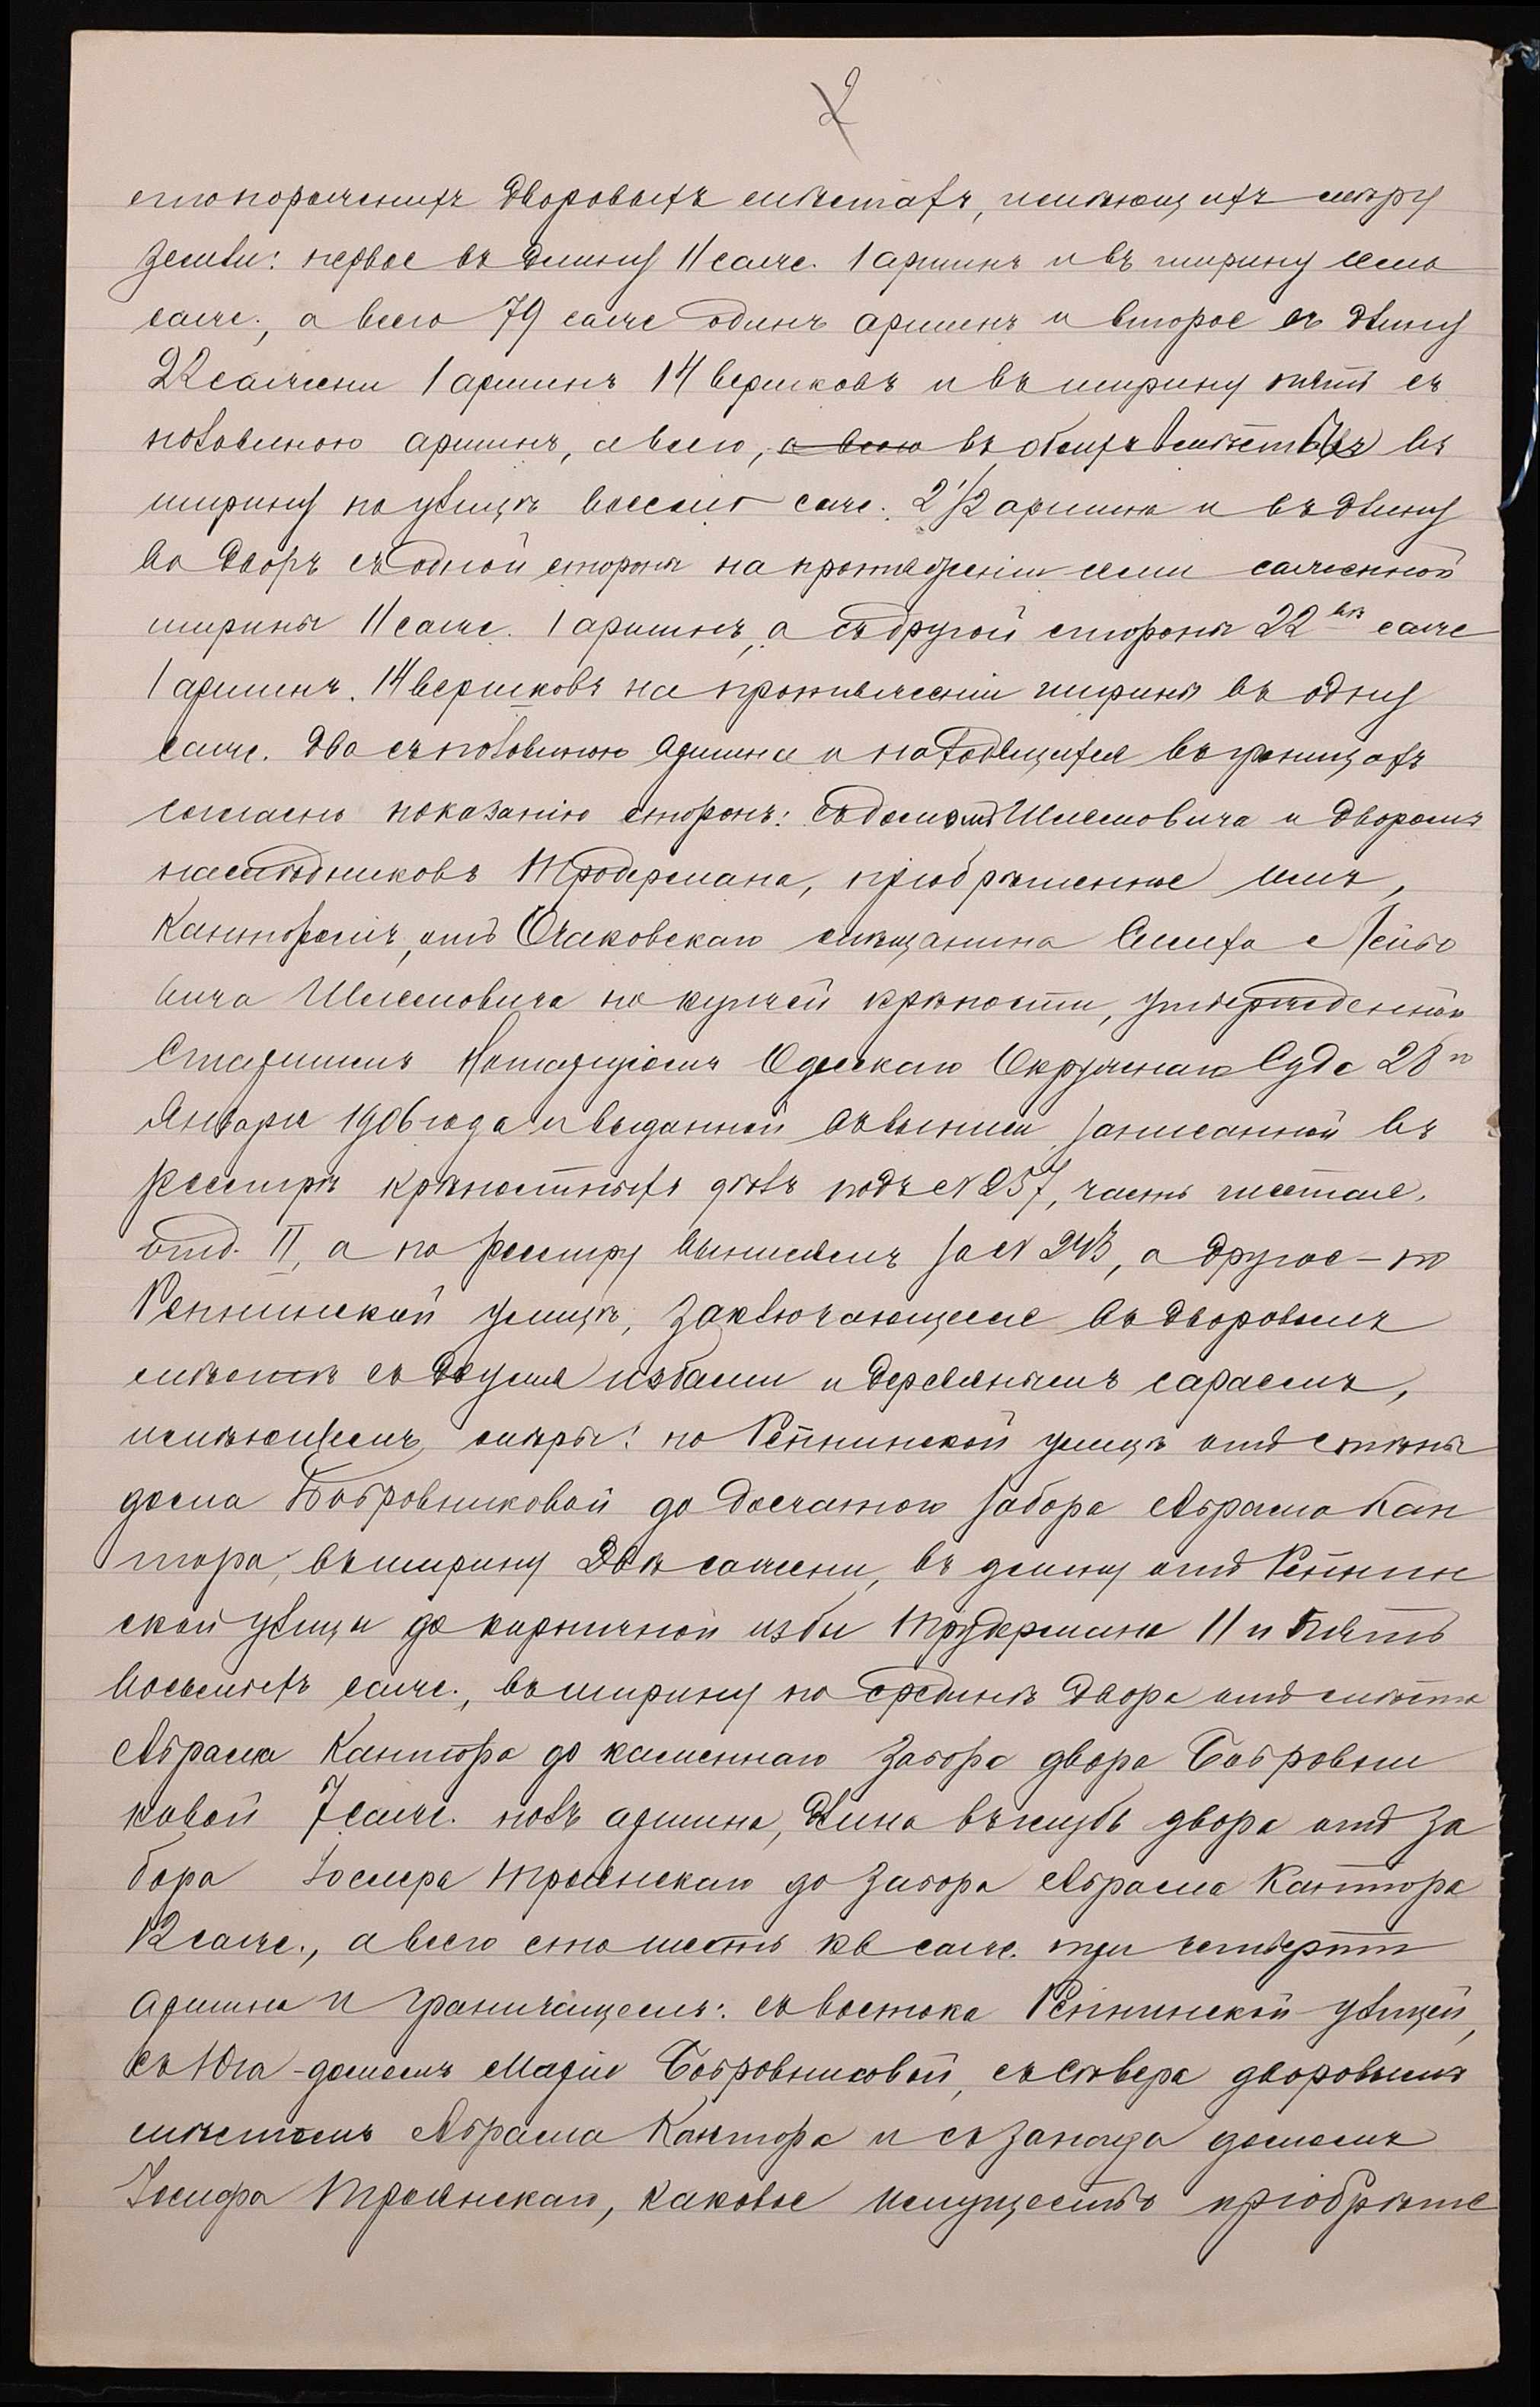 2
стопорожнихъ дворовыхъ мѣстахъ, имѣющихъ мѣру
земли: первое въ длину 11 саже. 1 аршинъ и въ ширину семь
саже., а всего 79 саже одинъ аршинъ и второе въ длину
22 сажени 1 аршинъ 14 вершковъ и въ ширину пять съ
половиною аршинъ, а всего, а всего въ обеихъ мѣстахъ въ
ширину по улицѣ восемь саже. 2 1/2 аршина и въ длину
во дворъ съ одной стороны на протяженіи семи саженной
ширины 11 саже. 1 аршинъ, а съ другой стороны 22 саже
1 аршинъ. 14 вершковъ на протяженіи ширины въ одну
саже. два съ половиною аршина и находящихся въ границахъ
согласно показанію сторонъ: съ домомъ Шлемовича и дворомъ
наслѣдниковъ Тродермана, пріобрѣтенное имъ,
Канторомъ, отъ Очаковскаго мѣщанина Лейбо
вича Шлемовича по купчей крѣпости, утвержденной
Старшимъ Нотаріусомъ Одесскаго Окружнаго Суда 28го
Января 1906 года и выданной въ выписи записанной въ
реестрѣ крѣпостныхъ дѣлъ подъ № 257, часть шестая,
отд. II, а по реестру выписямъ за № 243, а другое – по
Репнинской улицѣ, заключающееся въ дворовомъ
мѣстѣ съ двумя избами и деревяннымъ сараемъ,
имѣющемъ мѣры: по Репнинской улицѣ отъ стѣны
дома Бобровниковой до досчатаго забора Абрама Кан
тора, въ ширину двѣ сажени, въ длину отъ Репнин
ской улицы до кирпичной избы Трудермана 11 и пять
восьмыхъ саже., въ ширину по срединѣ двора отъ мѣста
Абрама Кантора до каменнаго забора двора Бобровни
ковой 7 саже. полъ аршина, длина въ глубь двора отъ за
бора Іосифа Троянскаго до забора Абрама Кантора
12 саже., а всего сто шесть кв саже. три четверти
аршина и граничащемъ: съ востока Репнинской улицей,
съ Юга – домомъ Маріи Бобровниковой, съ сѣвера дворовымъ
мѣстомъ Абрама Кантора и съ запада домомъ
Іосифа Троянскаго, каковое имущество пріобрѣте